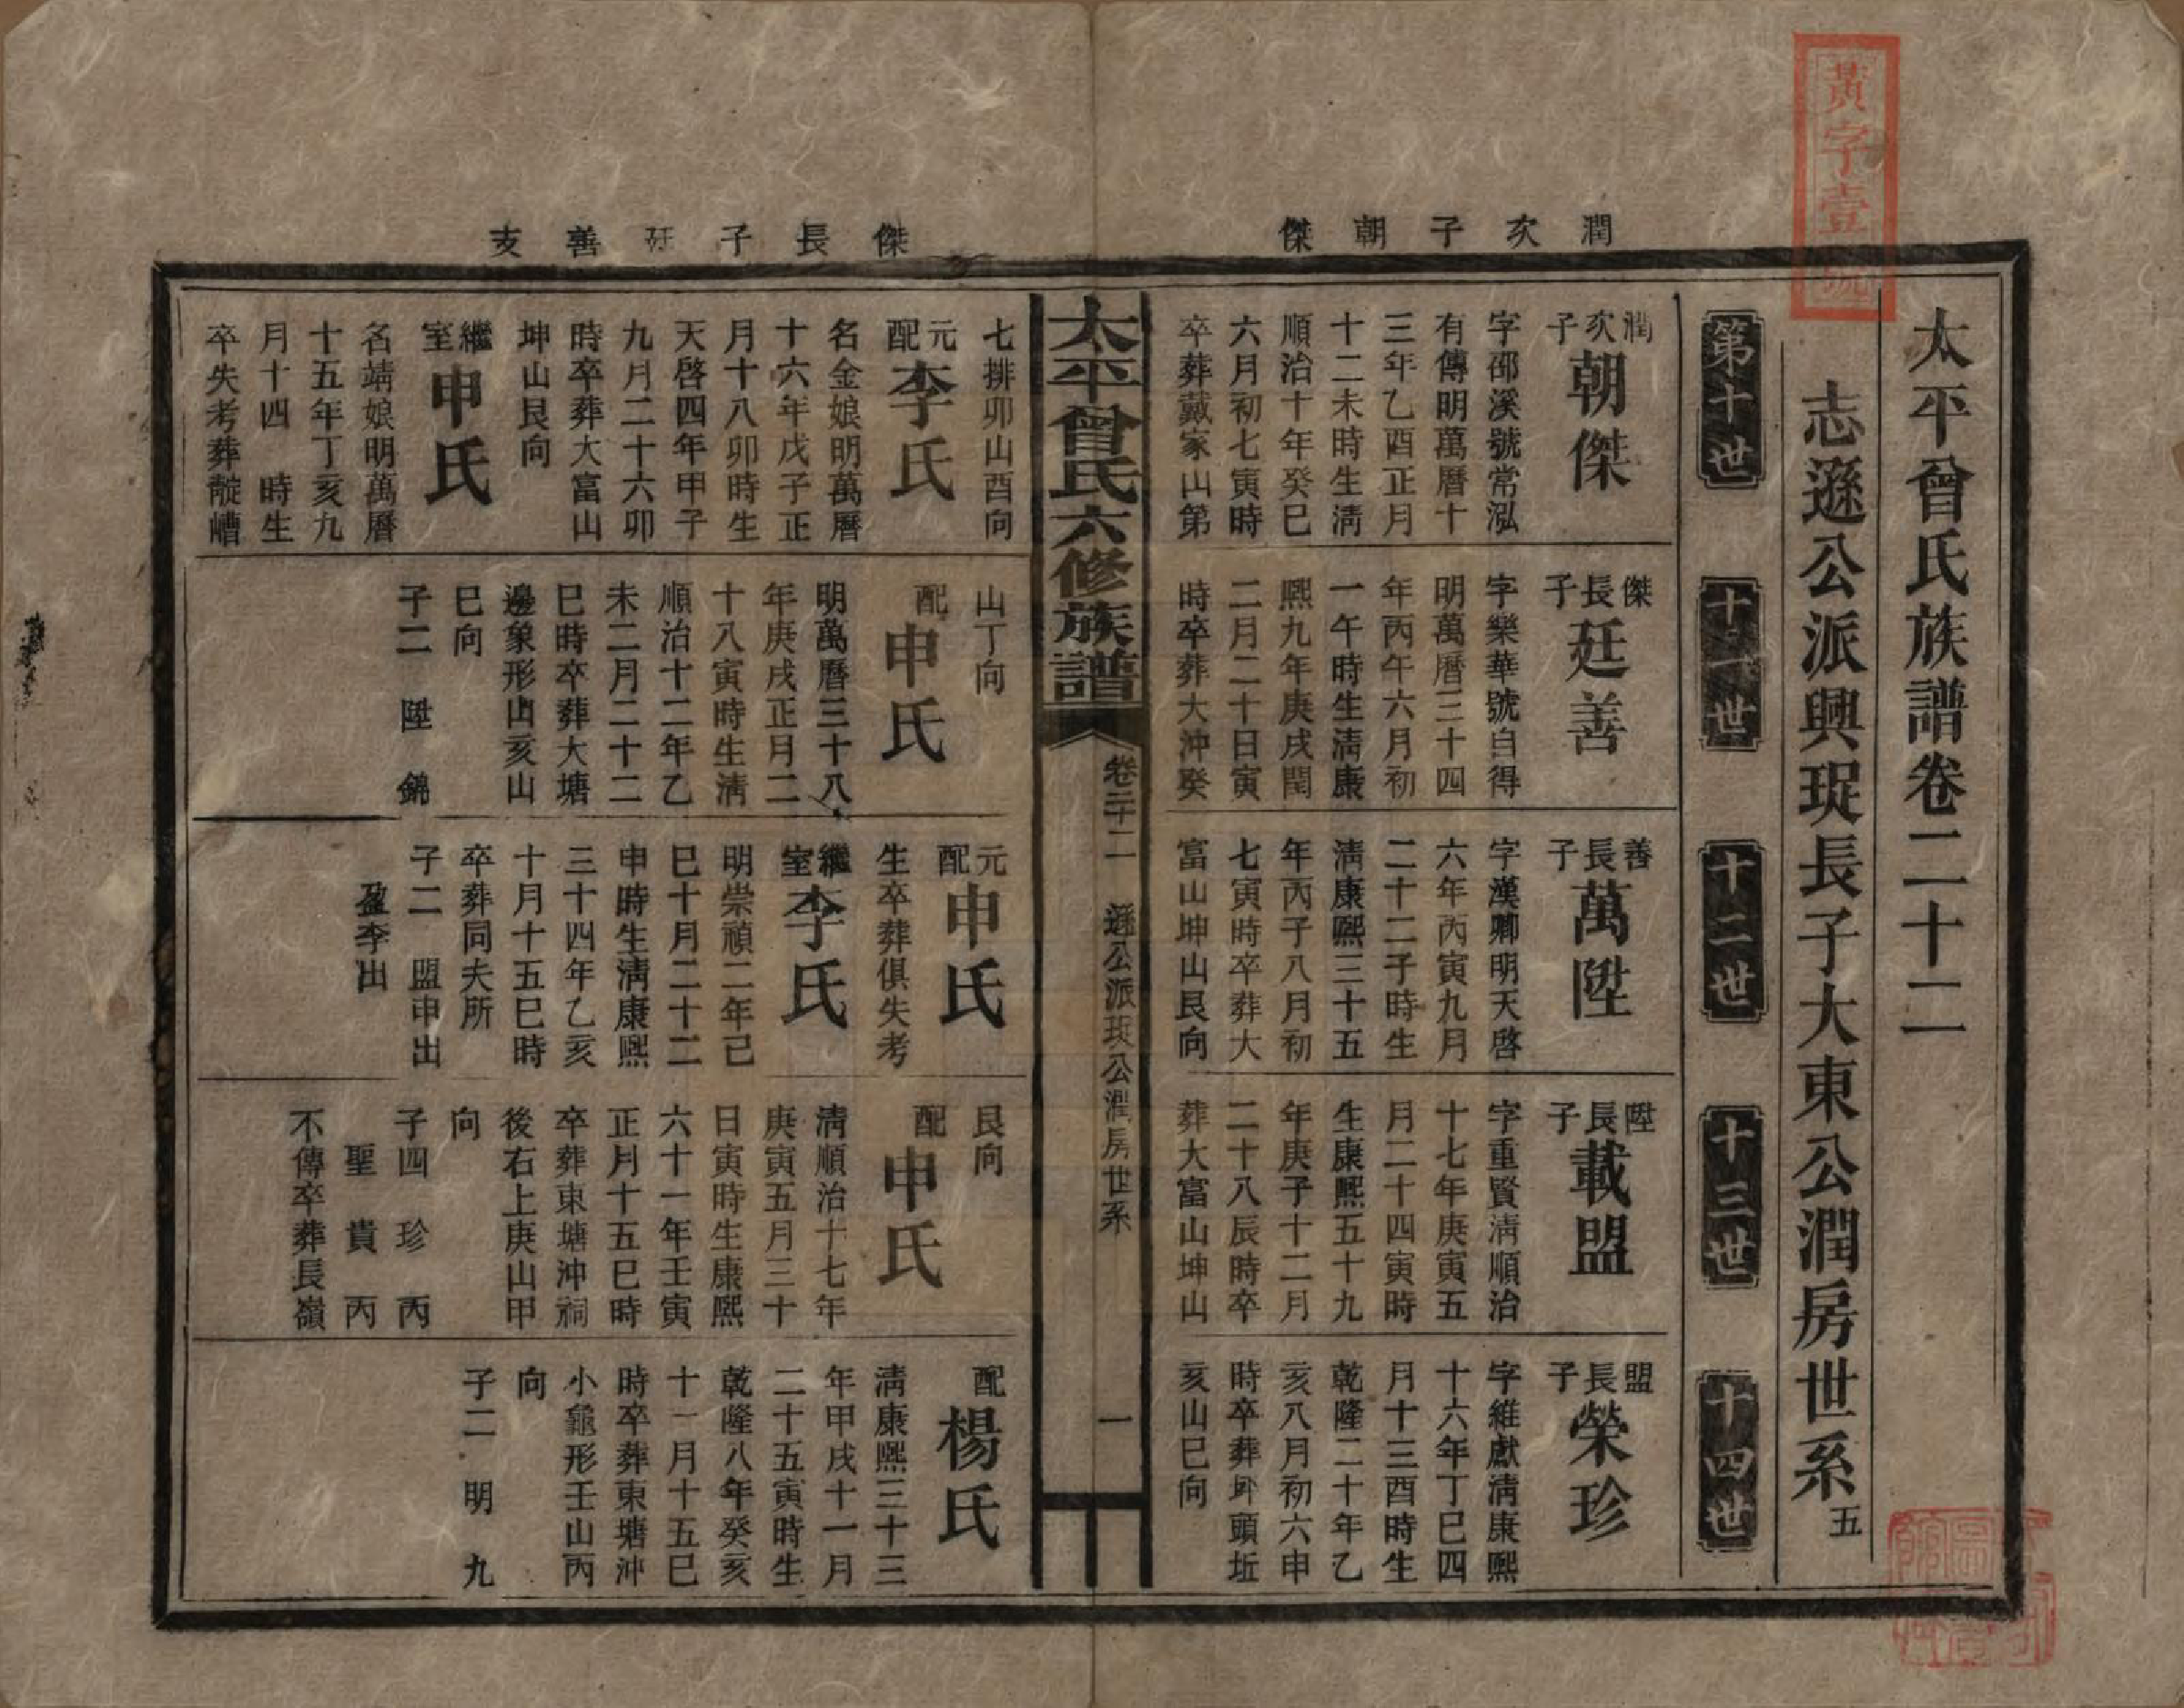 黃字壹號
太平曾氏族譜卷二十二
志遜公派興珽長子大東公潤房世系五
第十世
十一世
十二世
十三世
十四世
潤次子朝傑
潤次子
朝傑
字邵溪號常泓
有傳明萬曆十
三年乙酉正月
十二未時生清
順治十年癸巳
六月初七寅時
卒葬戴家山第
傑長子
廷善
字樂華號自得
明萬曆三十四
年丙午六月初
一午時生清康
熙九年庚戌閏
二月二十日寅
時卒葬大沖癸
善長子
萬陞
字漢卿明天啓
六年丙寅九月
二十二子時生
清康熙三十五
年丙子八月初
七寅時卒葬大
富山坤山艮向
陞長子
載盟
字重賢清順治
十七年庚寅五
月二十四寅時
生康熙五十九
年庚子十二月
二十八辰時卒
葬大富山坤山
盟長子
榮珍
字維獻清康熙
十六年丁巳四
月十三酉時生
乾隆二十年乙
亥八月初六申
時卒葬頭坵
亥山巳向
太平曾氏六修族譜
卷二十二
遜公派珽公潤房世系
一
傑長子廷善支
七排卯山酉向
元配
李氏
名金娘明萬曆
十六年戊子正
月十八卯時生
天啓四年甲子
九月二十六卯
時卒葬大富山
坤山艮向
繼室
申氏
名靖娘明萬曆
十五年丁亥九
月十四 時生
卒失考葬嘈
山丁向
配
申氏
明萬曆三十八
年庚戌正月二
十八寅時生清
順治十二年乙
未二月二十二
巳時卒葬大塘
邊象形山亥山
巳向
子二 陞 錦
元配
申氏
生卒葬俱失考
繼室
李氏
明崇禎二年己
巳十月二十二
申時生清康熙
三十四年乙亥
十月十五巳時
卒葬同夫所
子二 盟申出
盈李出
艮向
配
申氏
清順治十七年
庚寅五月三十
日寅時生康熙
六十一年壬寅
正月十五巳時
卒葬東塘沖祠
後右上庚山甲
向
子四 珍 丙
聖 貴 丙
不傳卒葬長嶺
配
楊氏
清康熙三十三
年甲戌十一月
二十五寅時生
乾隆八年癸亥
十一月十五巳
時卒葬東塘沖
小龜形壬山丙
向
子二 明 九